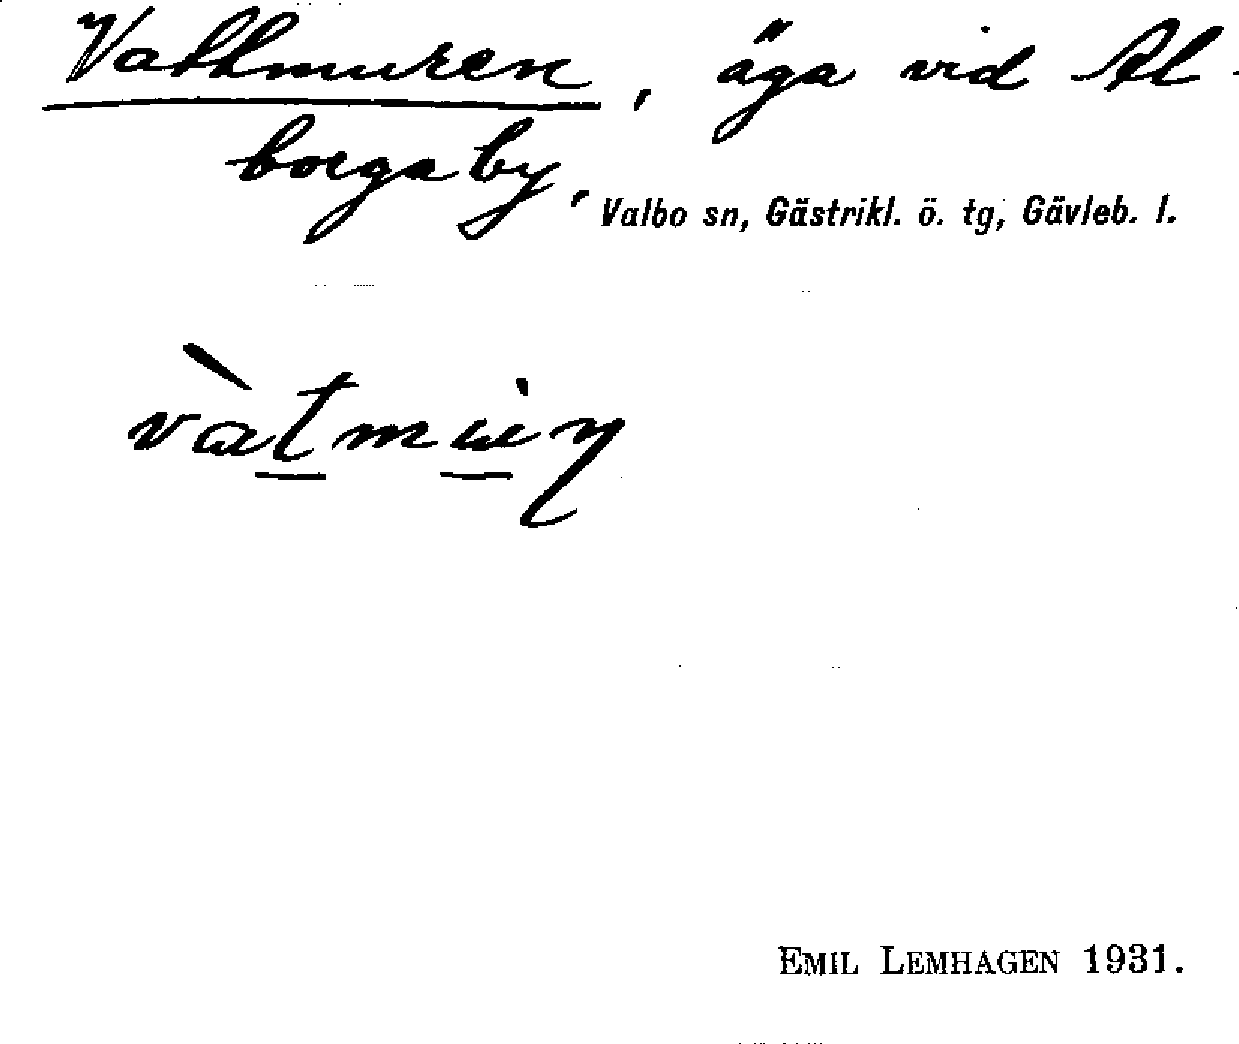 Vathmuren, äga vid Al-
borga by, Valbo sn, Gästrikl. ö. tg, Gävleb. l.
EMIL LEMHAGEN 1931.